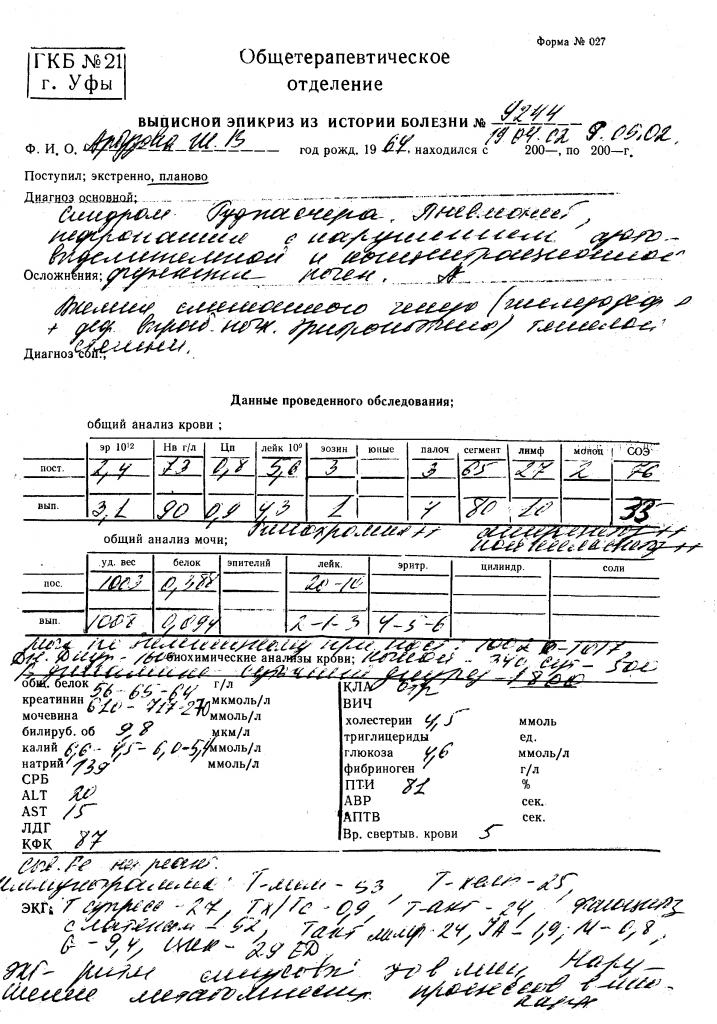 Форма № 027
ГКБ №21
г. Уфы
Общетерапевтическое
отделение
ВЫПИСНОЙ ЭПИКРИЗ ИЗ ИСТОРИИ БОЛЕЗНИ № 9244
Ф. И. О. Ш. В год рожд. 19 64, находился с 19 04.02 200—, по 9.05.02. 200—г.
Поступил; экстренно, планово
Диагноз основной;
Синдром Гудпасчера. Пневмонит,
нефропатия с нарушением азото-
выделительной и концентрационной
Осложнения; функции почек.
Анемия смешанного генеза
+ тяжелой
степени.
Диагноз соп.;
Данные проведенного обследования;
общий анализ крови ;
эр 10¹² Нв г/л Цп лейк 10⁹ эозин юные палоч сегмент лимф моноц СОЭ
пост. 2,4 73 0,8 5,6 3 3 65 27 2 76
вып. 3,1 90 0,9 4,3 1 80 10 33
Гипохромия ++ анизоцитоз ++
пойкилоцитоз ++
общий анализ мочи;
уд. вес белок эпителий лейк. эритр. цилиндр. соли
пос. 1003 0,388 20-10
вып. 1008 0,094 2-1-3 4-5-6
биохимические анализы крови;
диурез - 1800
общ. белок 56-65-64 г/л
креатинин 610-717-270 мкмоль/л
мочевина ммоль/л
билируб. об 9,8 мкм/л
калий 6,6-4,5-6,0-5,4 ммоль/л
натрий 139 ммоль/л
СРБ
ALT 20
AST 15
ЛДГ
КФК 87
КЛА отр
ВИЧ
холестерин 4,5 ммоль
триглицериды ед.
глюкоза 4,6 ммоль/л
фибриноген г/л
ПТИ 81 %
АВР сек.
АПТВ сек.
Вр. свертыв. крови 5
сыв. Fe
Иммунограмма: Т-лим - 53, Т-хелп - 25,
ЭКГ; Т супресс - 27, Тх/Тс - 0,9, Т-акт - 24, фагоцитоз
с латексом - 52, 24, JA - 1,9, М - 0,8,
G - 9,4, ЦИК - 29 ЕД
ЭКГ - ритм синусовый 70 в мин, Нару-
шение метаболических процессов в мио-
карде